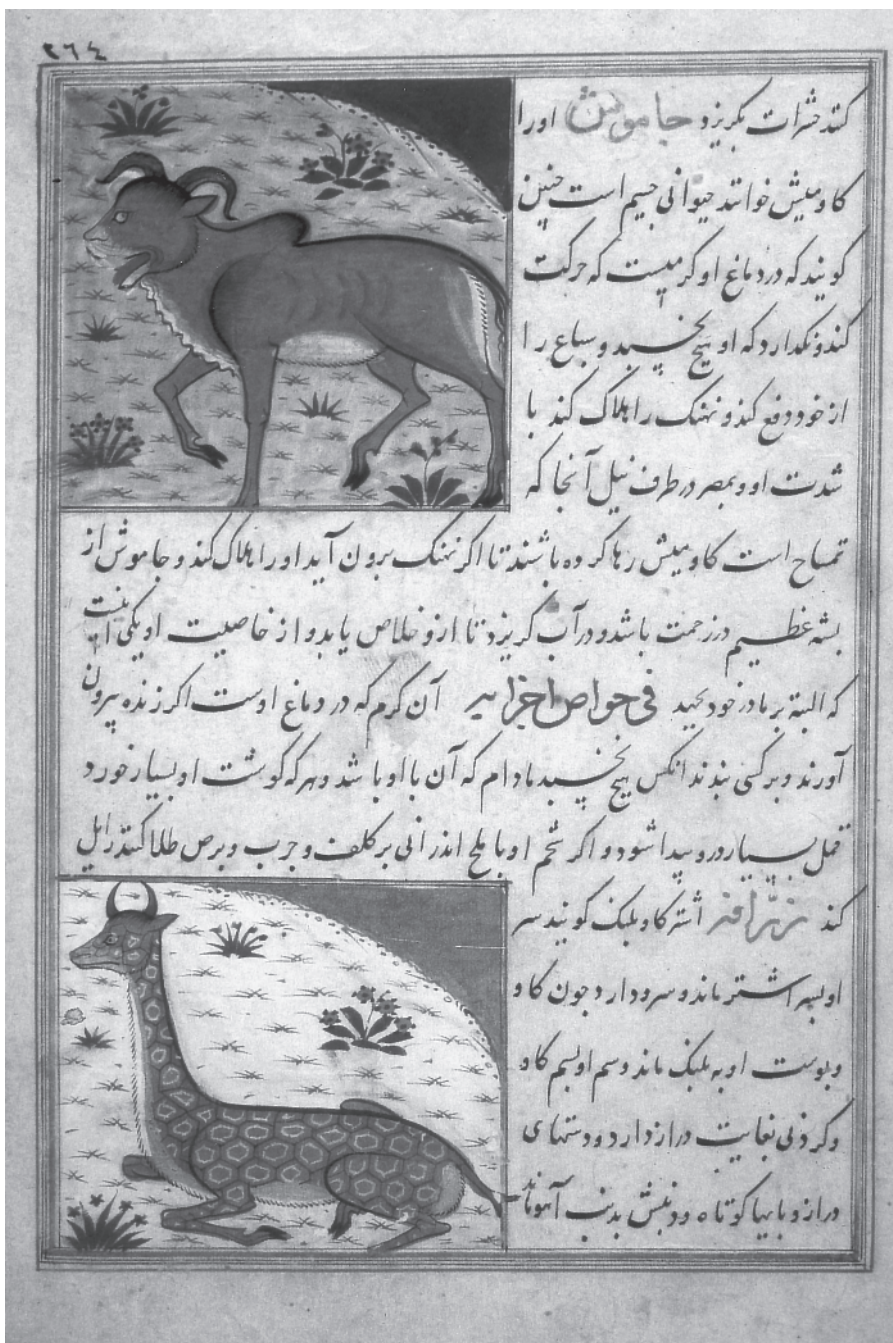 ٢٦٤
کند حشرات بکریزد جاموش اورا
کاومیش خوانند حیوانی جسیم است چنین
کویند که در دماغ او کرمیست که حرکت
کند ونکذارد که او هیچ بخسبد و سباع را
از خود دفع کند و نهنک را هلاک کند با
شدت او و بمصر در طرف نیل آنجا که
تمساح است کاومیش رها کرده باشند تا اکر نهنک برون آید اورا هلاک کند و جاموش از
بشه عظیم در زحمت باشد و در آب کریزد تا ازو خلاص یابد و از خاصیت او یکی اینست
که البتة بر مادر خود نجهد فی خواص اجزایه آن کرم که در دماغ اوست اکر زنده بیرون
آورند و بر کسی بندند انکس هیچ نخسبد مادام که آن با او باشد و هر که کوشت او بسیار خورد
قمل بسیار درو پیدا شود و اکر شحم او با ملح اندرانی بر کلف و جرب و برص طلا کنند زایل
کند زرّافه اشتر کاو بلنک کویند سر
او بسر اشتر ماند و سرو دارد چون کاو
و بوست او به بلنک ماند و سم او بسم کاو
و کردنی بغایت دراز دارد و دستهای
دراز و بایها کوتاه و دنبش بدنب آهو ماند